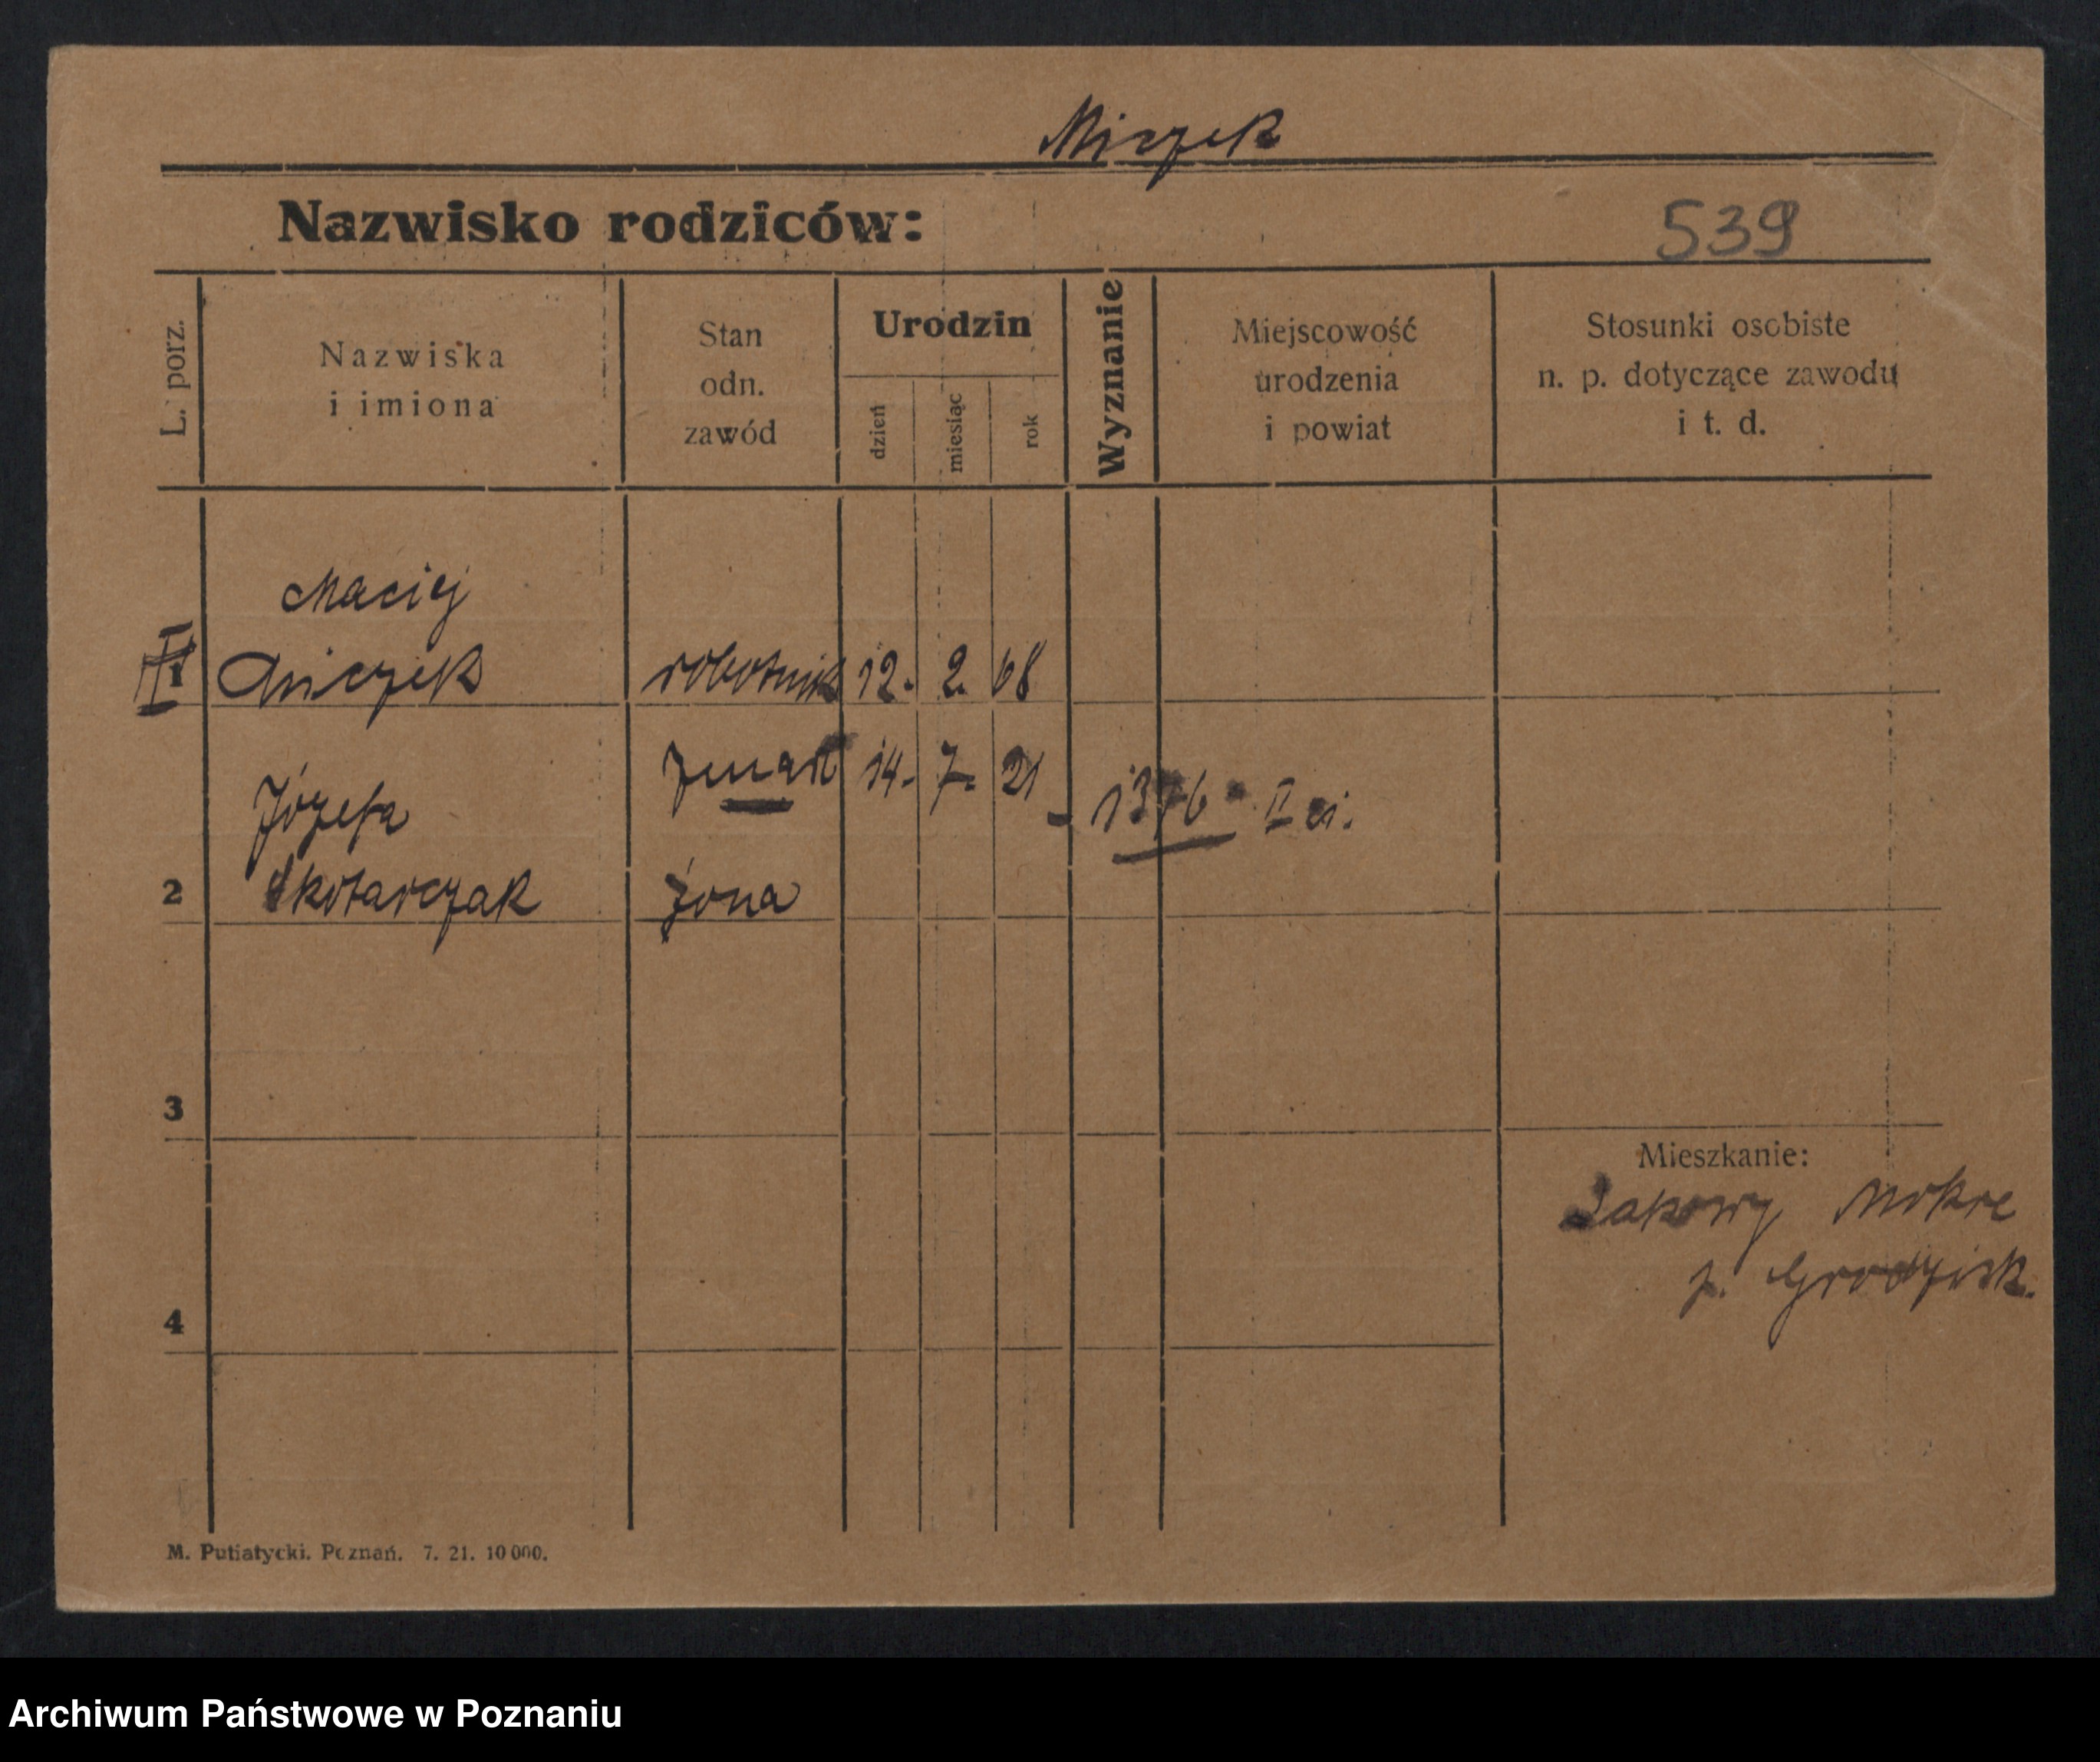 Miczek
Nazwisko rodziców:
539
L. porz.
Nazwiska
i imiona
Stan
odn.
zawód
Urodzin
dzień
miesiąc
rok
Wyznanie
Miejscowość
urodzenia
i powiat
Stosunki osobiste
n. p. dotyczące zawodu
i t. d.
Maciej
1 Miczek robotnik 12. 2. 68
zmarł 14. 7. 21 - 1376 - II
Józefa
2 Skotarczak żona
3
Mieszkanie:
Łąkowy Mokre
p. Grodzisk.
4
M. Putiatycki. Poznań. 7. 21. 10 000.
Archiwum Państwowe w Poznaniu